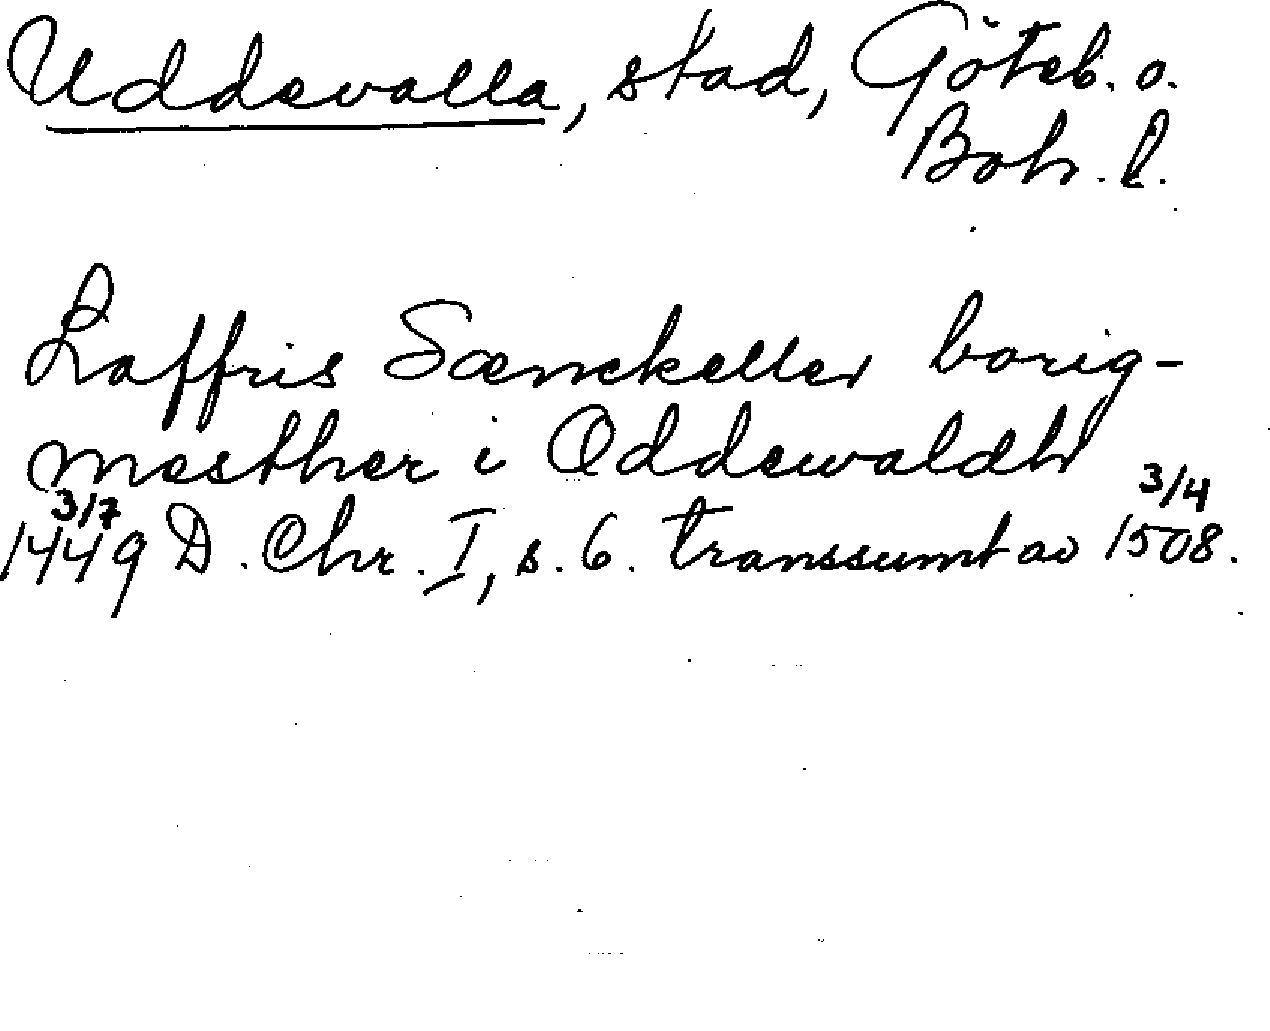 Uddevalla, stad, Göteb. o.
Boh. l.
Laffris Sænckeller borig-
mesther i Oddewaldh
3/7 3/4
1449 D. Chr. I, s. 6. transsumt av 1508.